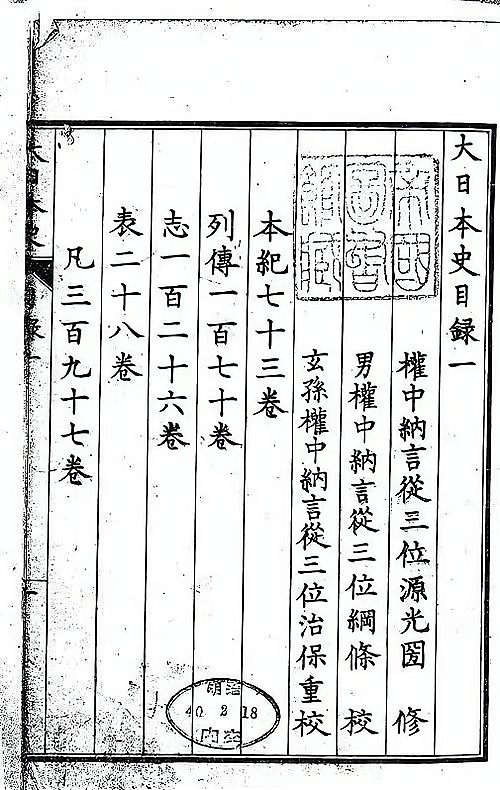 大日本史目録一
權中納言從三位源光圀 修
男權中納言從三位綱條 校
玄孫權中納言從三位治保重校
帝國圖書館藏
本紀七十三卷
列傳一百七十卷
志一百二十六卷
表二十八卷
凡三百九十七卷
明治
40 2 18